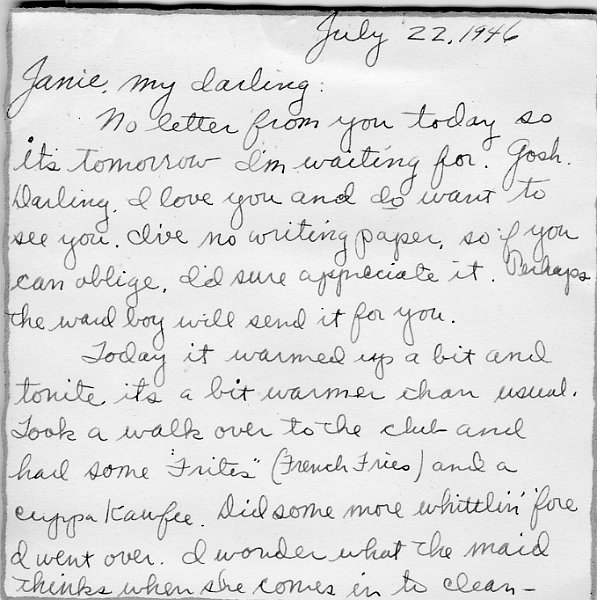 July 22, 1946
Janie, my darling:
No letter from you today so
it's tomorrow I'm waiting for. Gosh.
Darling, I love you and do want to
see you. I've no writing paper, so if you
can oblige, I'd sure appreciate it. Perhaps
the ward boy will send it for you.
Today it warmed up a bit and
tonite it's a bit warmer than usual.
Took a walk over to the club and
had some "Frites" (French Fries) and a
cuppa Kawfee. Did some more whittlin' 'fore
I went over. I wonder what the maid
thinks when she comes in to clean-